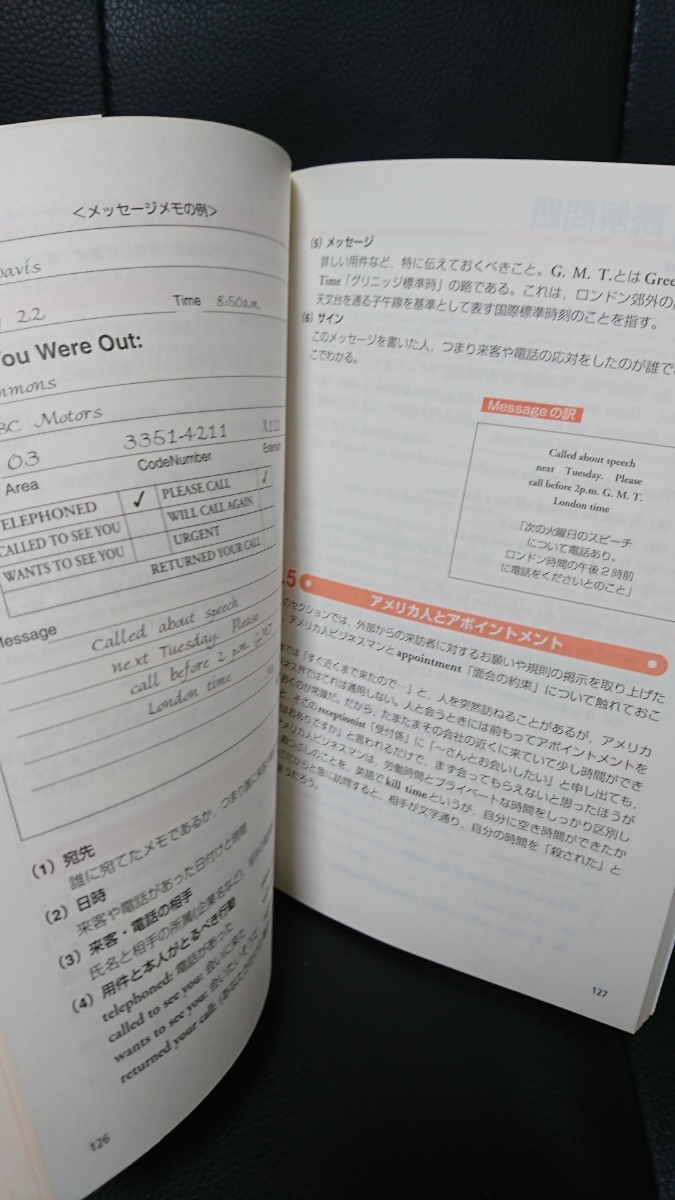 <メッセージメモの例>
Davis
22 Time 8:50a.m.
You Were Out:
mmons
BC Motors
03 3351-4211 X111
Area CodeNumber
TELEPHONED ✓ PLEASE CALL ✓
CALLED TO SEE YOU WILL CALL AGAIN
WANTS TO SEE YOU URGENT
RETURNED YOUR CALL
Message
Called about speech
next Tuesday. Please
call before 2 p.m. GMT
London time
(1) 宛先
誰に宛てたメモであるか、つまり
(2) 日時
来客や電話があった日付けと時間
(3) 来客・電話の相手
氏名と相手の所属(企業名など)、
(4) 用件と本人がとるべき行動
telephoned: 電話があった
called to see you: 会いに来た
wants to see you: 会いたい
returned your call:
126
読解問題
(5) メッセージ
詳しい用件など、特に伝えておくべきこと。G. M. T.とは Gree
Time「グリニッジ標準時」の略である。これは、ロンドン郊外の
天文台を通る子午線を基準として表す国際標準時刻のことを指す。
(6) サイン
このメッセージを書いた人、つまり来客や電話の応対をしたのが誰で
こでわかる。
Messageの訳
Called about speech
next Tuesday. Please
call before 2p.m. G. M. T.
London time
「次の火曜日のスピーチ
について電話あり。
ロンドン時間の午後2時前
に電話をくださいとのこと」
.5 アメリカ人とアポイントメント
のセクションでは、外部からの来訪者に対するお願いや規則の掲示を取り上げた
、アメリカ人ビジネスマンとappointment「面会の約束」について触れておこ
では「すぐ近くまで来たので…」と、人を突然訪ねることがあるが、アメリカ
ネス界ではこれは通用しない。人と会うときには前もってアポイントメントを
おくのが常識だ。だから、たまたまその会社の近くに来ていて少し時間ができ
と、そこのreceptionist「受付係」に「〜さんとお会いしたい」と申し出ても、
はおありですか」と言われるだけで、まず会ってもらえないと思ったほうが
アメリカ人ビジネスマンは、労働時間とプライベートな時間をしっかり区別し
暇つぶしのことを、英語でkill timeというが、自分に空き時間ができたか
だからと急に訪問すると、相手が文字通り、自分の時間を「殺された」と
うだろう。
127